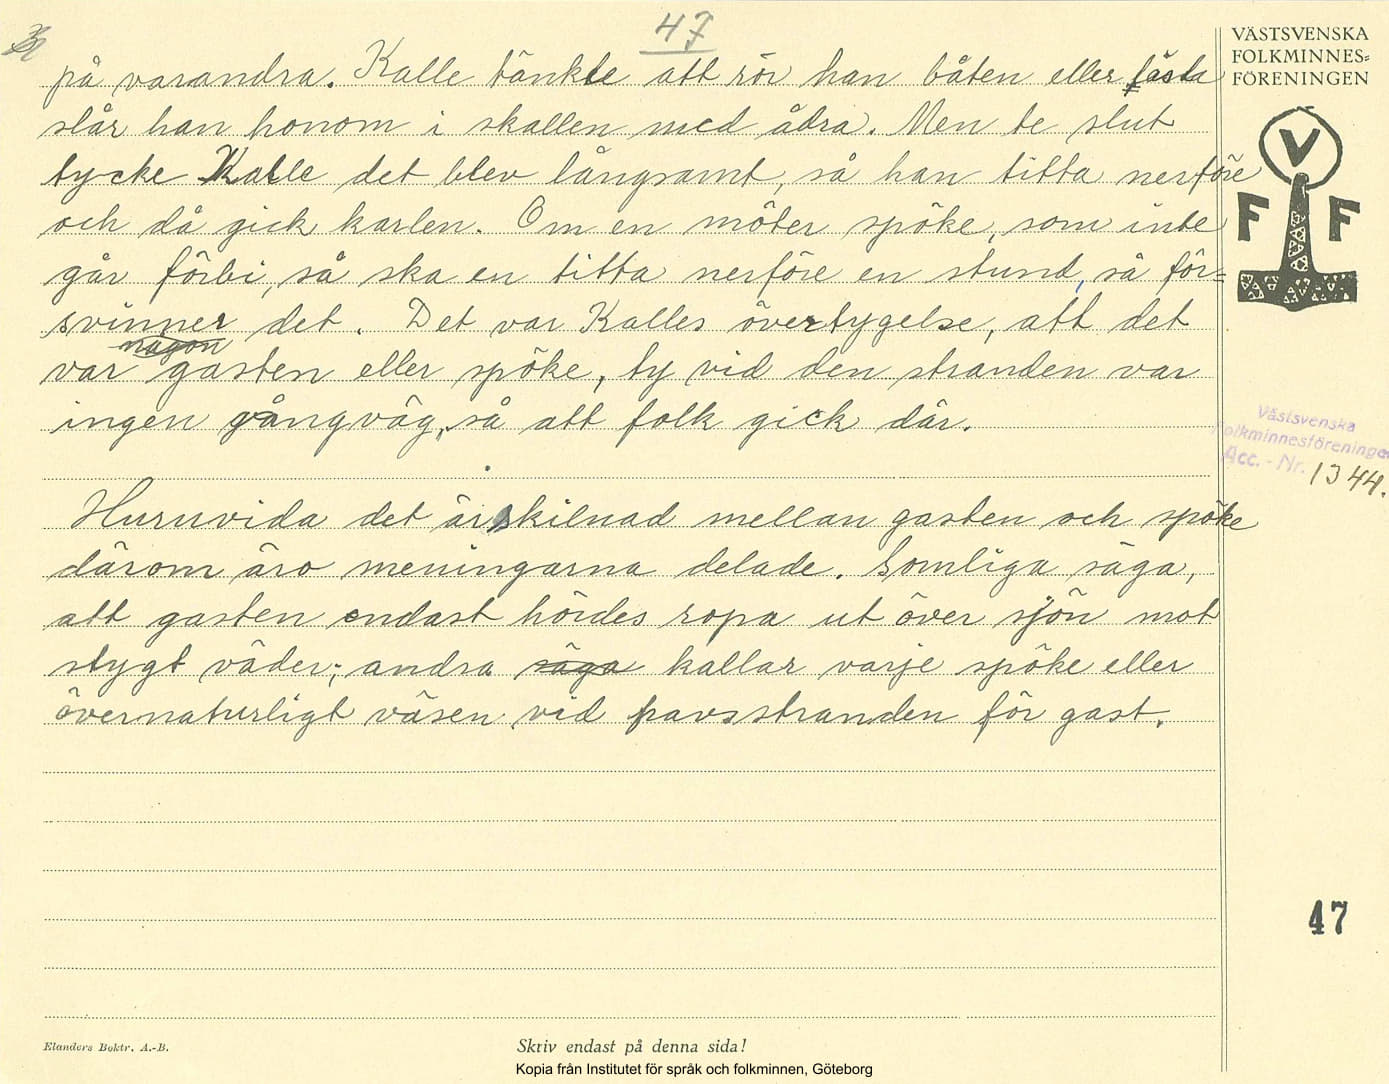 47
på varandra. Kalle tänkte att rör han båten eller fästa
slår han honom i skallen med ådra. Men te slut
tycke Kalle det blev långsamt, så han titta nerföre
och då gick karlen. Om en möter spöke, som inte
går förbi, så ska en titta nerföre en stund, så för=
svinner det. Det var Kalles övertygelse, att det
någon
var gasten eller spöke, ty vid den stranden var
ingen gångväg, så att folk gick där.
Huruvida det är skilnad mellan gasten och spöke
därom äro meningarna delade. Somliga säga,
att gasten endast hördes ropa ut över sjön mot
stygt väder; andra säga kallar varje spöke eller
övernaturligt väsen vid havsstranden för gast.
VÄSTSVENSKA
FOLKMINNES=
FÖRENINGEN
V
F F
Västsvenska
Folkminnesföreningen
Acc. - Nr. 1344.
47
Elanders Boktr. A.-B.
Skriv endast på denna sida!
Kopia från Institutet för språk och folkminnen, Göteborg